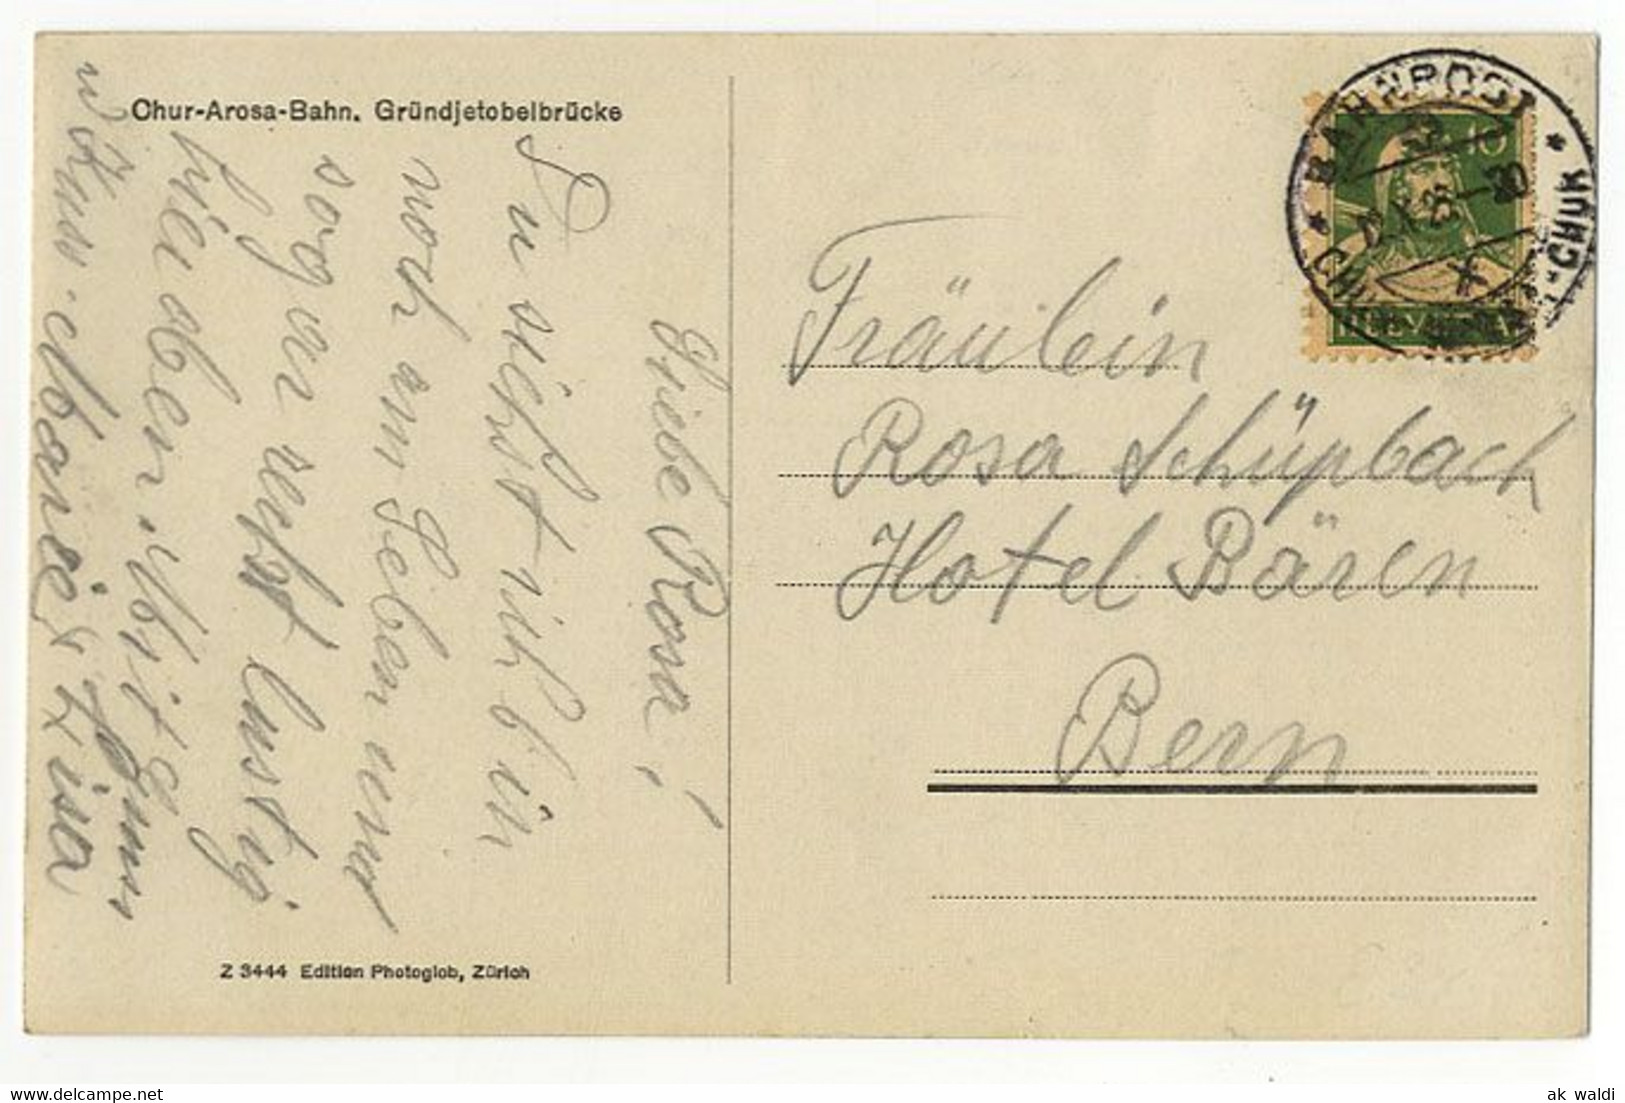 Chur-Arosa-Bahn. Gründjetobelbrücke
Liebe Rosa!
Du siehst ich bin
noch am Leben und
sogar recht lustig
hier oben. Mit Gruss
u. Kuss Lisa
Z 3444 Edition Photoglob, Zürich
BAHNPOST
10
HELVETIA
CHUR
Fräulein
Rosa Schüpbach
Hotel Bären
Bern
ak waldi